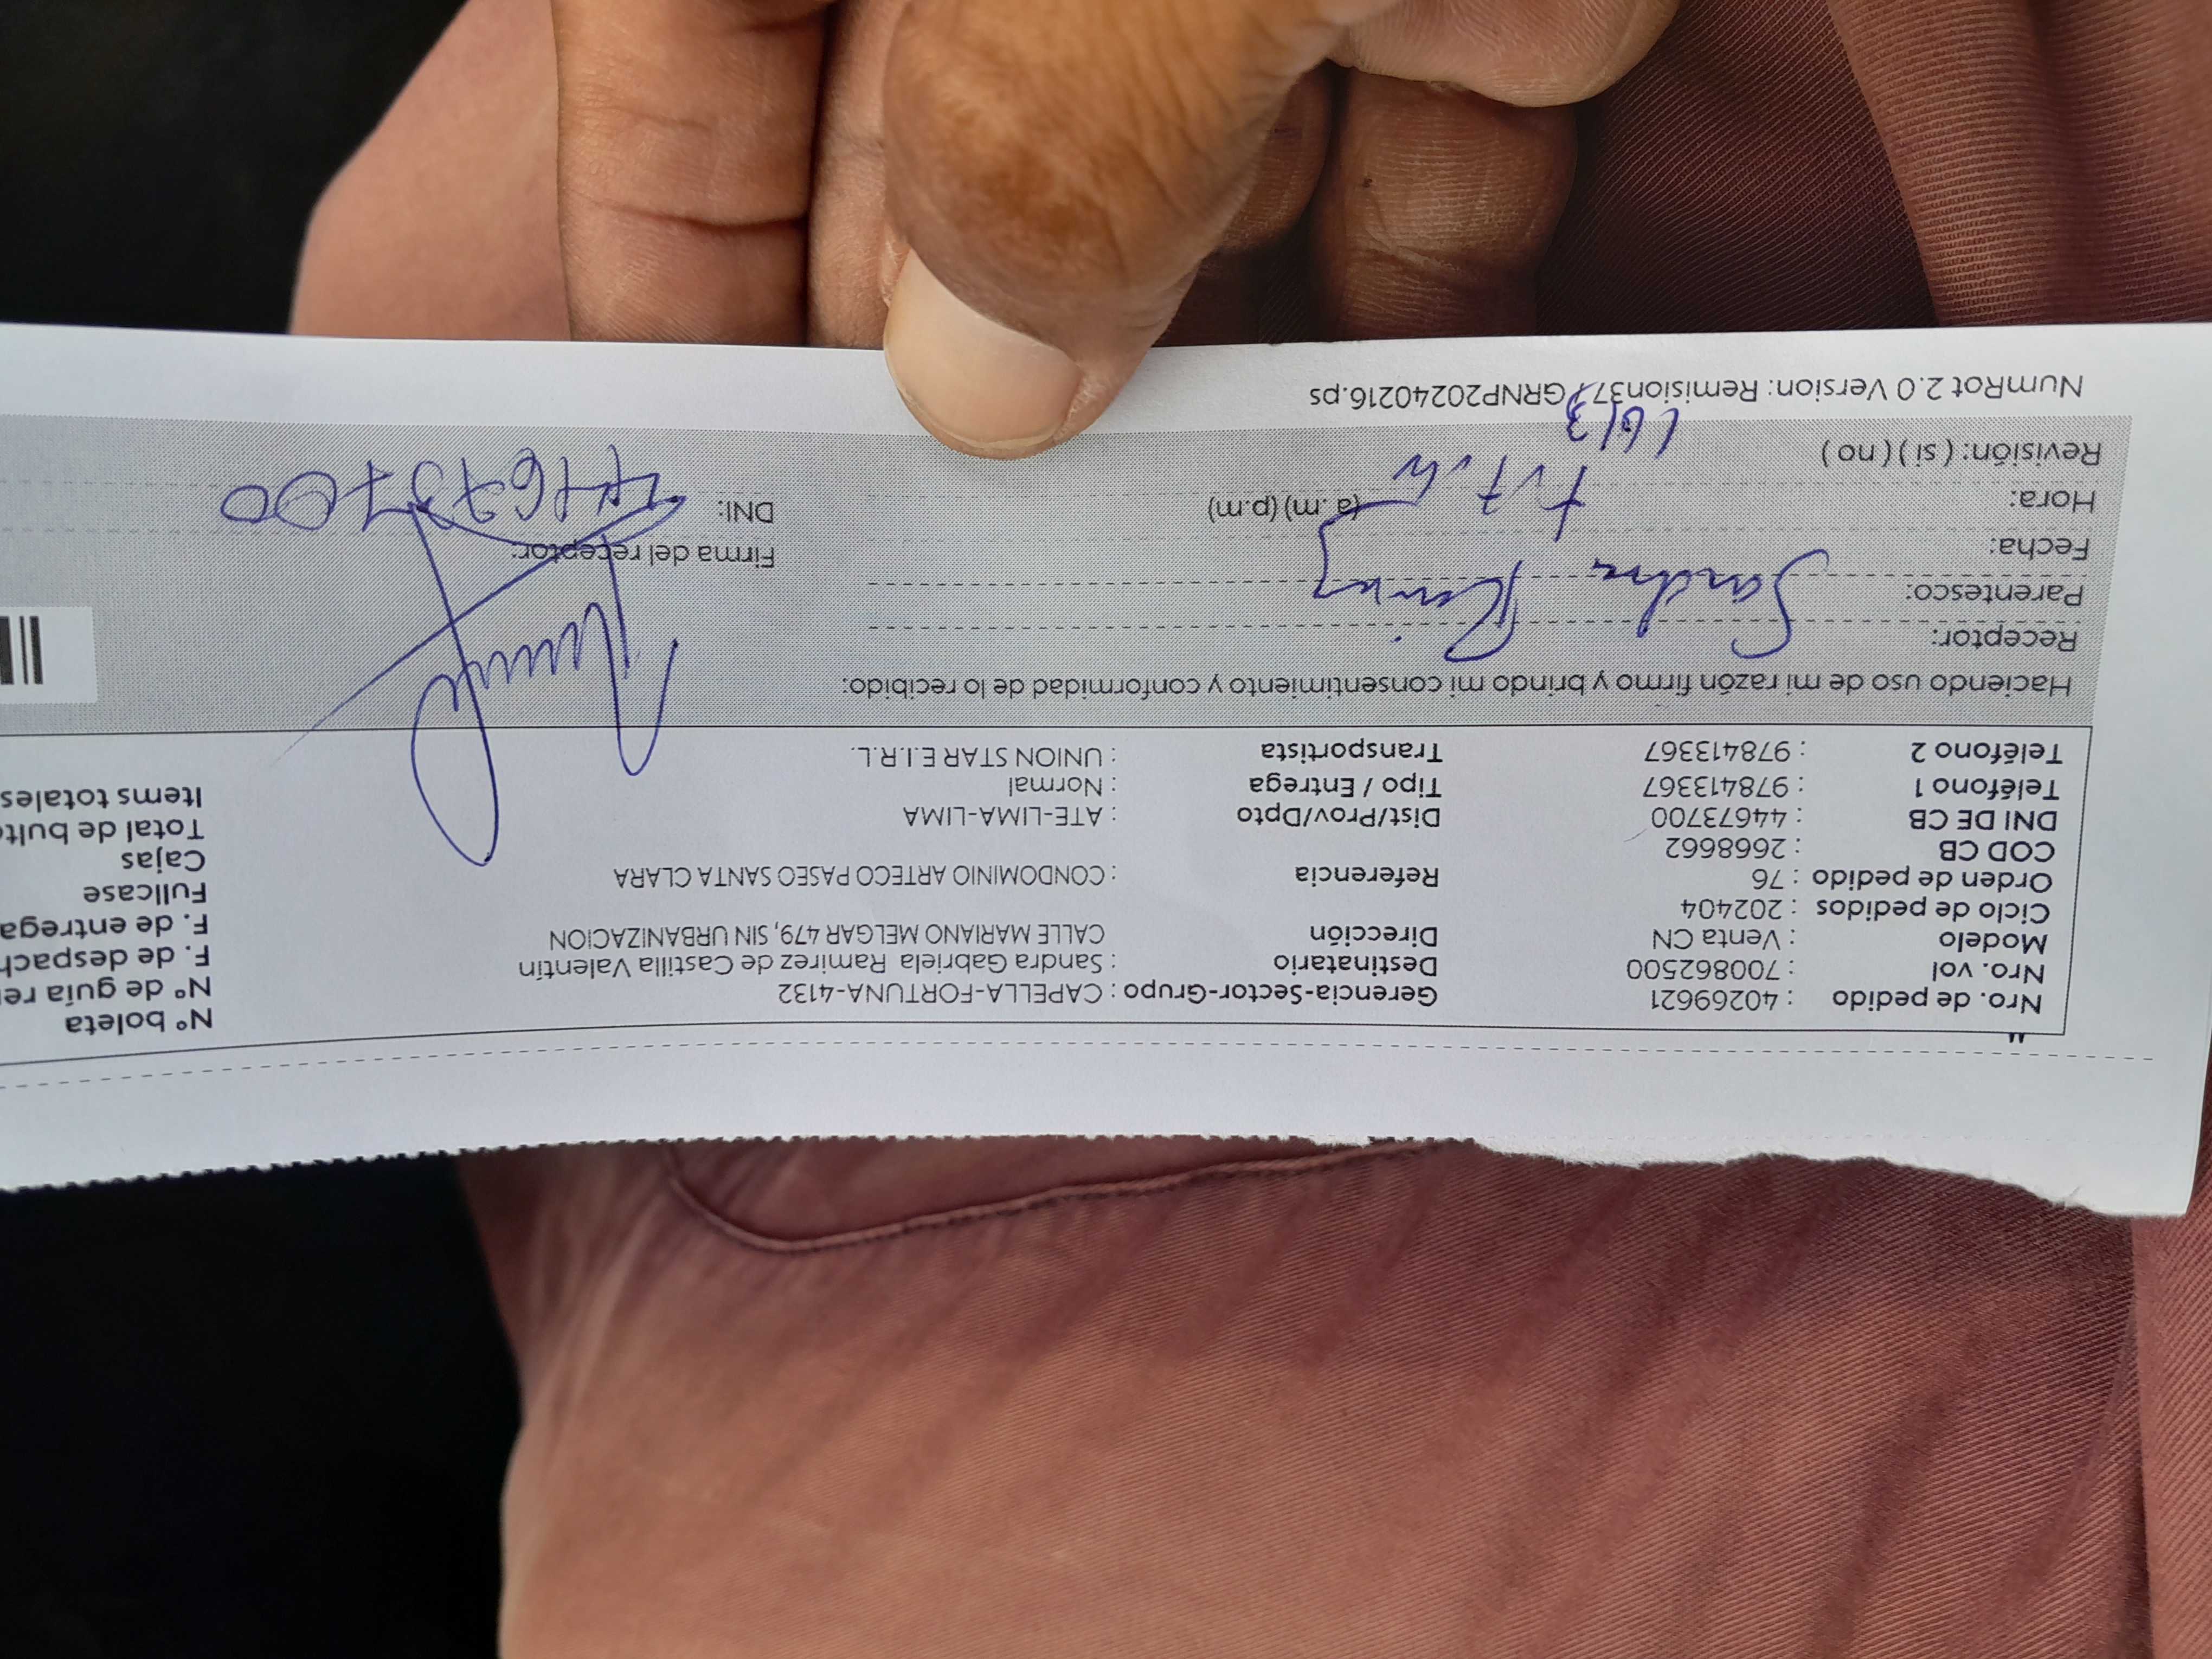 Nro. de pedido : 40269621 Gerencia-Sector-Grupo : CAPELLA-FORTUNA-4132 N° boleta
Nro. vol : 700862500 Destinatario : Sandra Gabriela Ramirez de Castilla Valentín N° de guía re
Modelo : Venta CN Dirección CALLE MARIANO MELGAR 479, SIN URBANIZACION F. de despach
Ciclo de pedidos : 202404 F. de entrega
Orden de pedido : 76 Referencia : CONDOMINIO ARTECO PASEO SANTA CLARA Fullcase
COD CB : 2668662 Cajas
DNI DE CB : 44673700 Dist/Prov/Dpto : ATE-LIMA-LIMA Total de bult
Teléfono 1 : 978413367 Tipo / Entrega : Normal Items totales
Teléfono 2 : 978413367 Transportista : UNION STAR E.I.R.L.
Haciendo uso de mi razón firmo y brindo mi consentimiento y conformidad de lo recibido:
Receptor: Sandra Ramirez
Parentesco:
Fecha: Firma del receptor:
Hora: (a.m) (p.m) DNI: 44673700
Revisión: ( si ) ( no )
NumRot 2.0 Version: Remision377GRNP20240216.ps